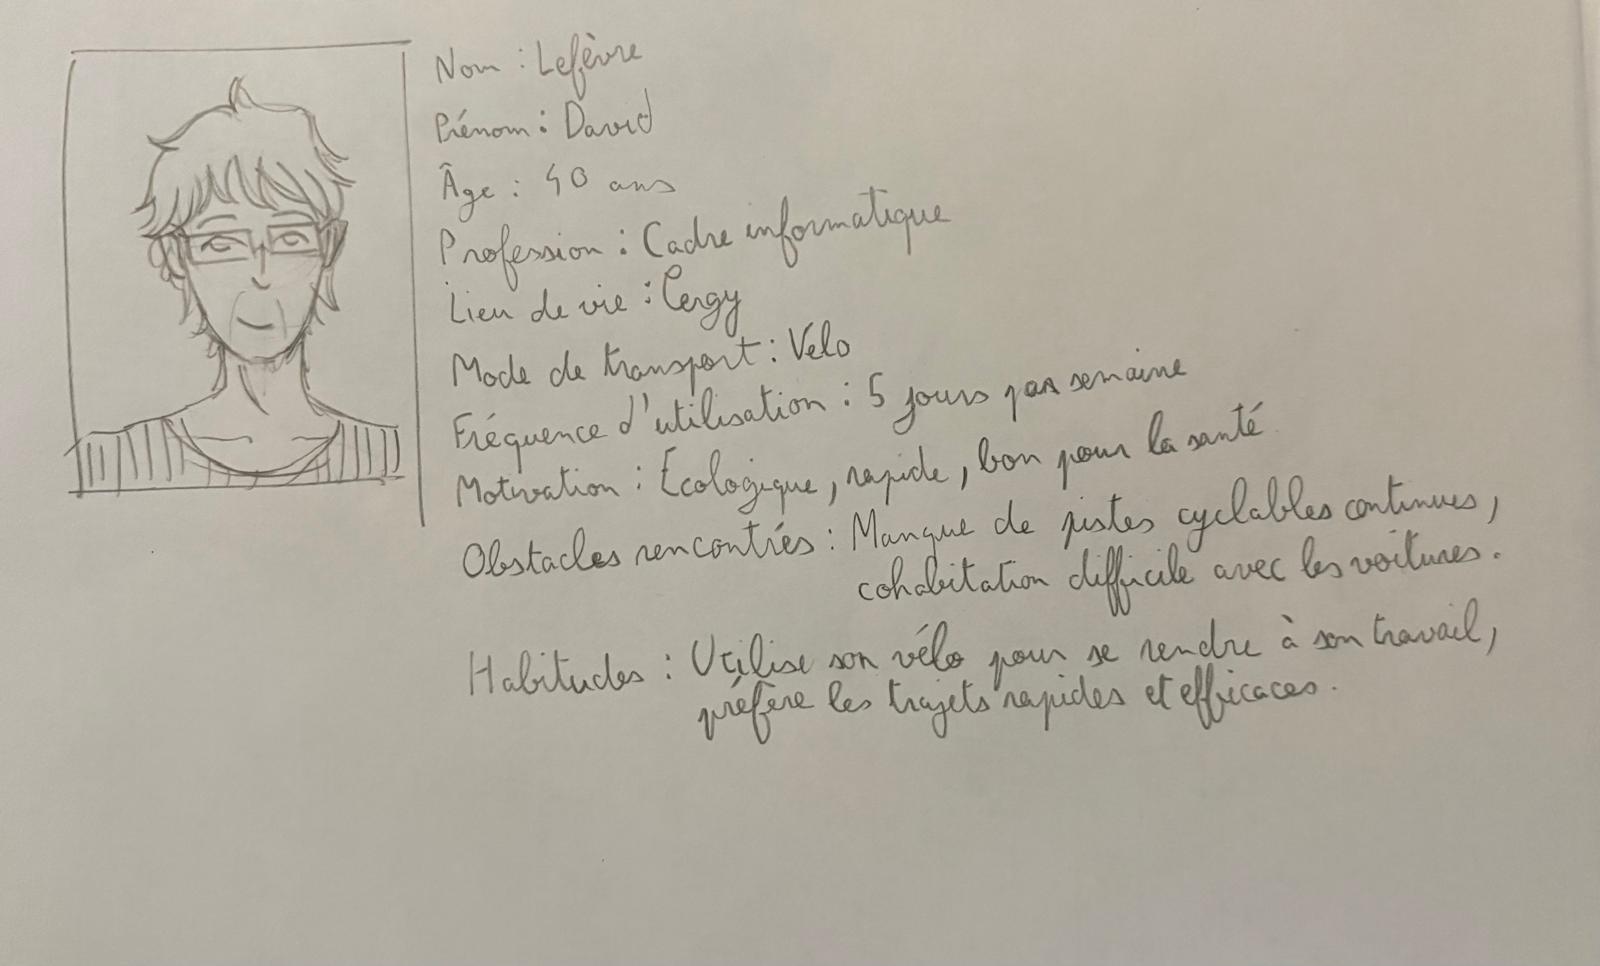 Nom : Lefèvre
Prénom : David
Âge : 40 ans
Profession : Cadre informatique
Lieu de vie : Cergy
Mode de transport : Vélo
Fréquence d'utilisation : 5 jours par semaine
Motivation : Écologique, rapide, bon pour la santé
Obstacles rencontrés : Manque de pistes cyclables continues,
cohabitation difficile avec les voitures.
Habitudes : Utilise son vélo pour se rendre à son travail,
préfère les trajets rapides et efficaces.